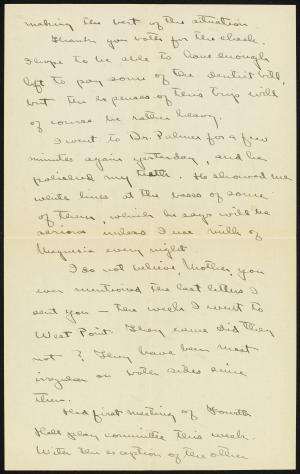 making the best of the situation.
Thank you both for the check.
I hope to be able to have enough
left to pay some of the dentist bill,
but the expenses of this trip will
of course be rather heavy.
I went to Dr. Palmer for a few
minutes again yesterday, and he
polished my teeth. He showed me
white lines at the bases of some
of them, which he says will be
serious unless I use milk of
Magnesia every night
I do not believe, Mother, you
ever mentioned the last letters I
sent you — the week I went to
West Point. They came did they
not? They have been most
irregular on both sides since
then.
Had first meeting of Fourth
Hall play committee this week.
With the exception of the other